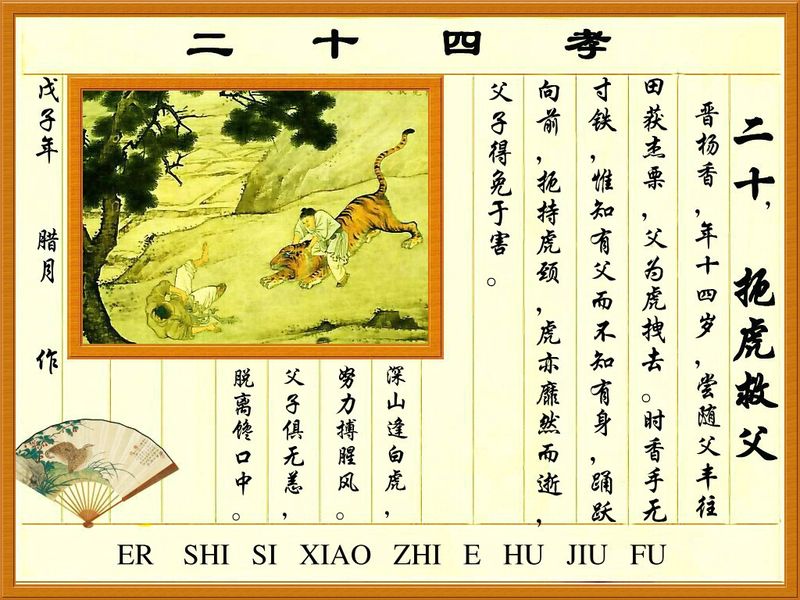 二十四孝
二十，扼虎救父
晋杨香，年十四岁，尝随父丰往
田获杰粟，父为虎拽去。时香手无
寸铁，惟知有父而不知有身，踊跃
向前，扼持虎颈，虎亦靡然而逝，
父子得免于害。
深山逢白虎，
努力搏腥风。
父子俱无恙，
脱离馋口中。
戊子年 腊月 作
ER SHI SI XIAO ZHI E HU JIU FU